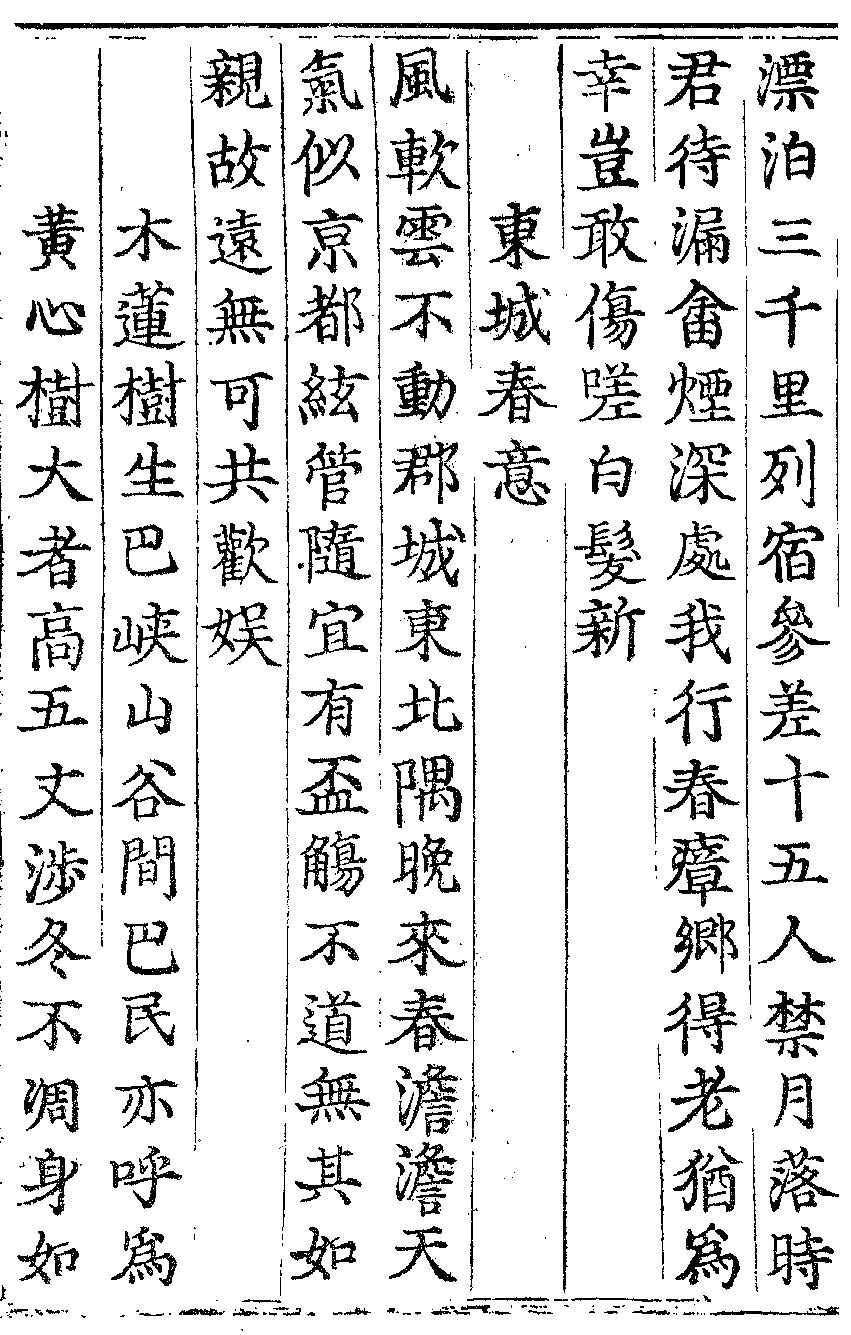 漂泊三千里列宿參差十五人禁月落時
君待漏畬煙深處我行春瘴鄉得老猶爲
幸豈敢傷嗟白髮新
東城春意
風軟雲不動郡城東北隅晚來春澹澹天
氣似京都絃管隨宜有盃觴不道無其如
親故遠無可共歡娛
木蓮樹生巴峽山谷間巴民亦呼爲
黃心樹大者高五丈涉冬不凋身如